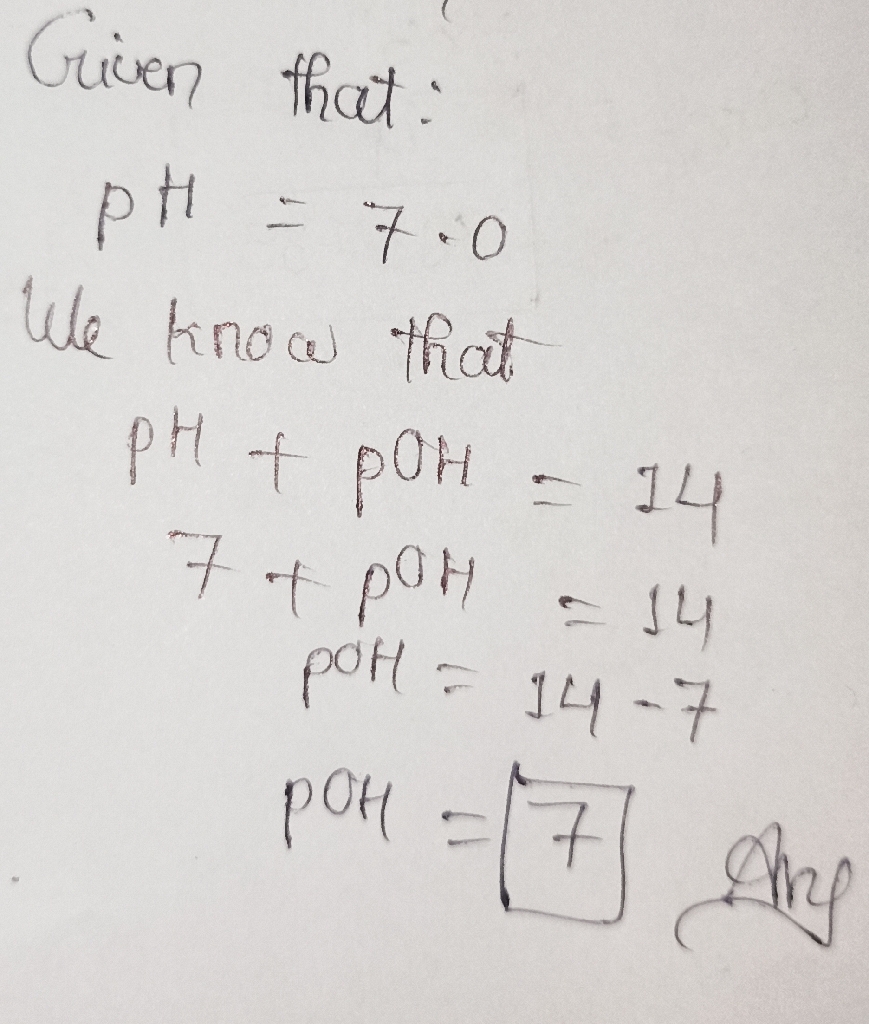 Given that:
pH = 7.0
We know that
pH + pOH = 14
7 + pOH = 14
pOH = 14 - 7
pOH = 7 Ans